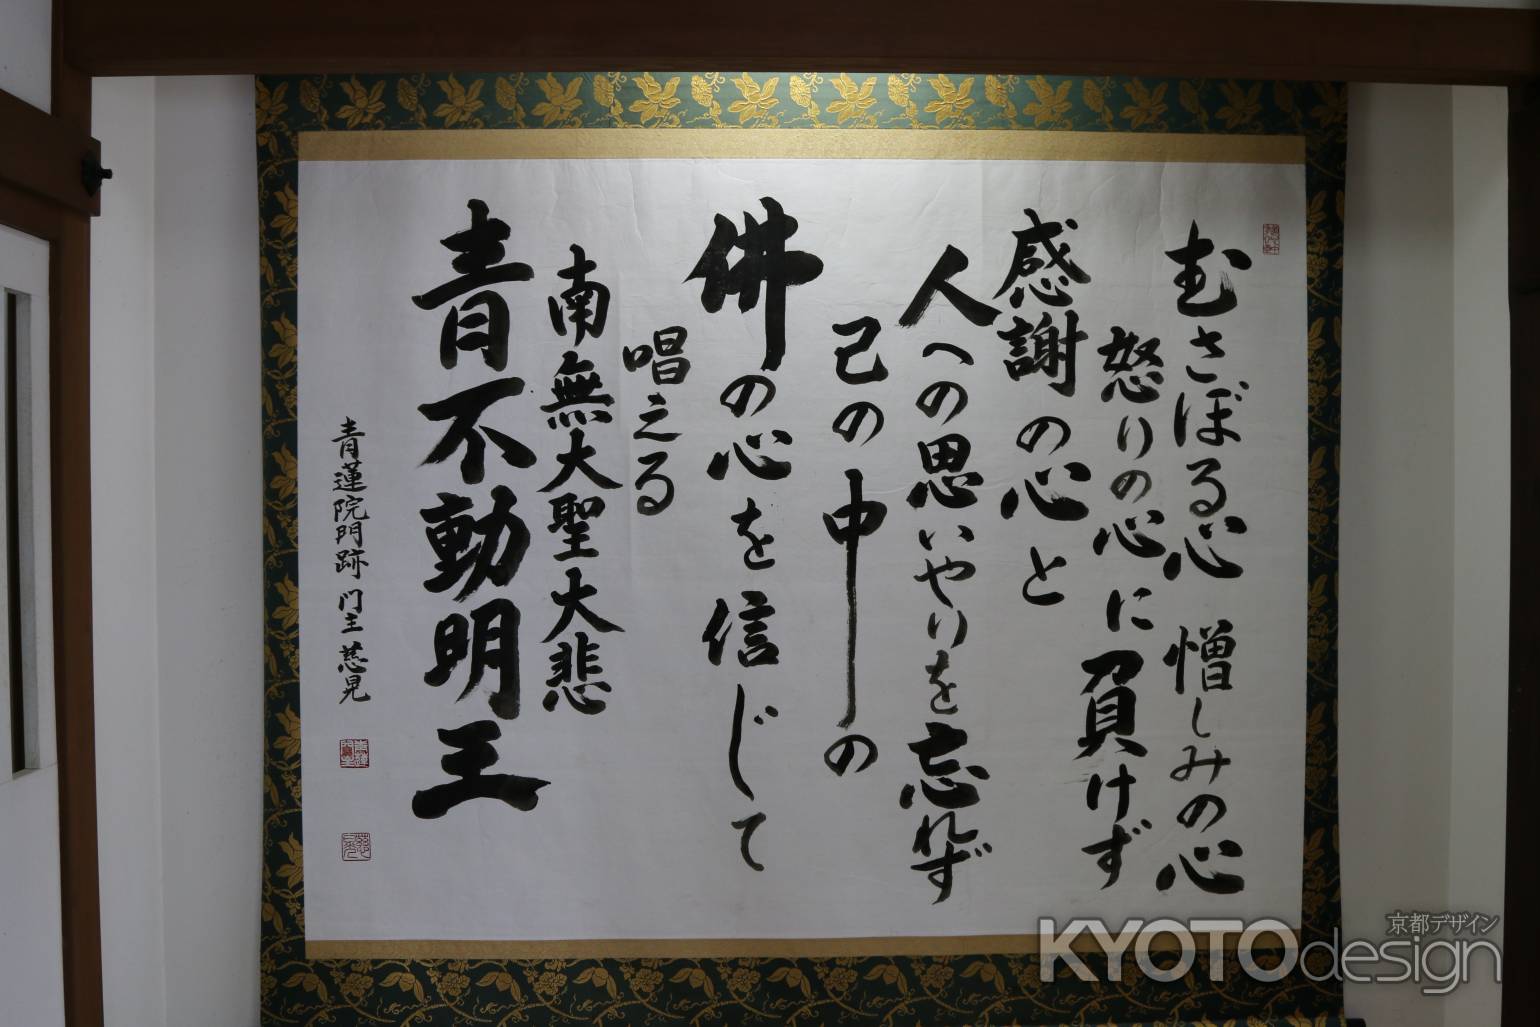 むさぼる心 憎しみの心
怒りの心に負けず
感謝の心と
人への思いやりを忘れず
己の中の
佛の心を信じて
唱える
南無大聖大悲
青不動明王
青蓮院門跡 門主 慈晃
京都デザイン
KYOTOdesign